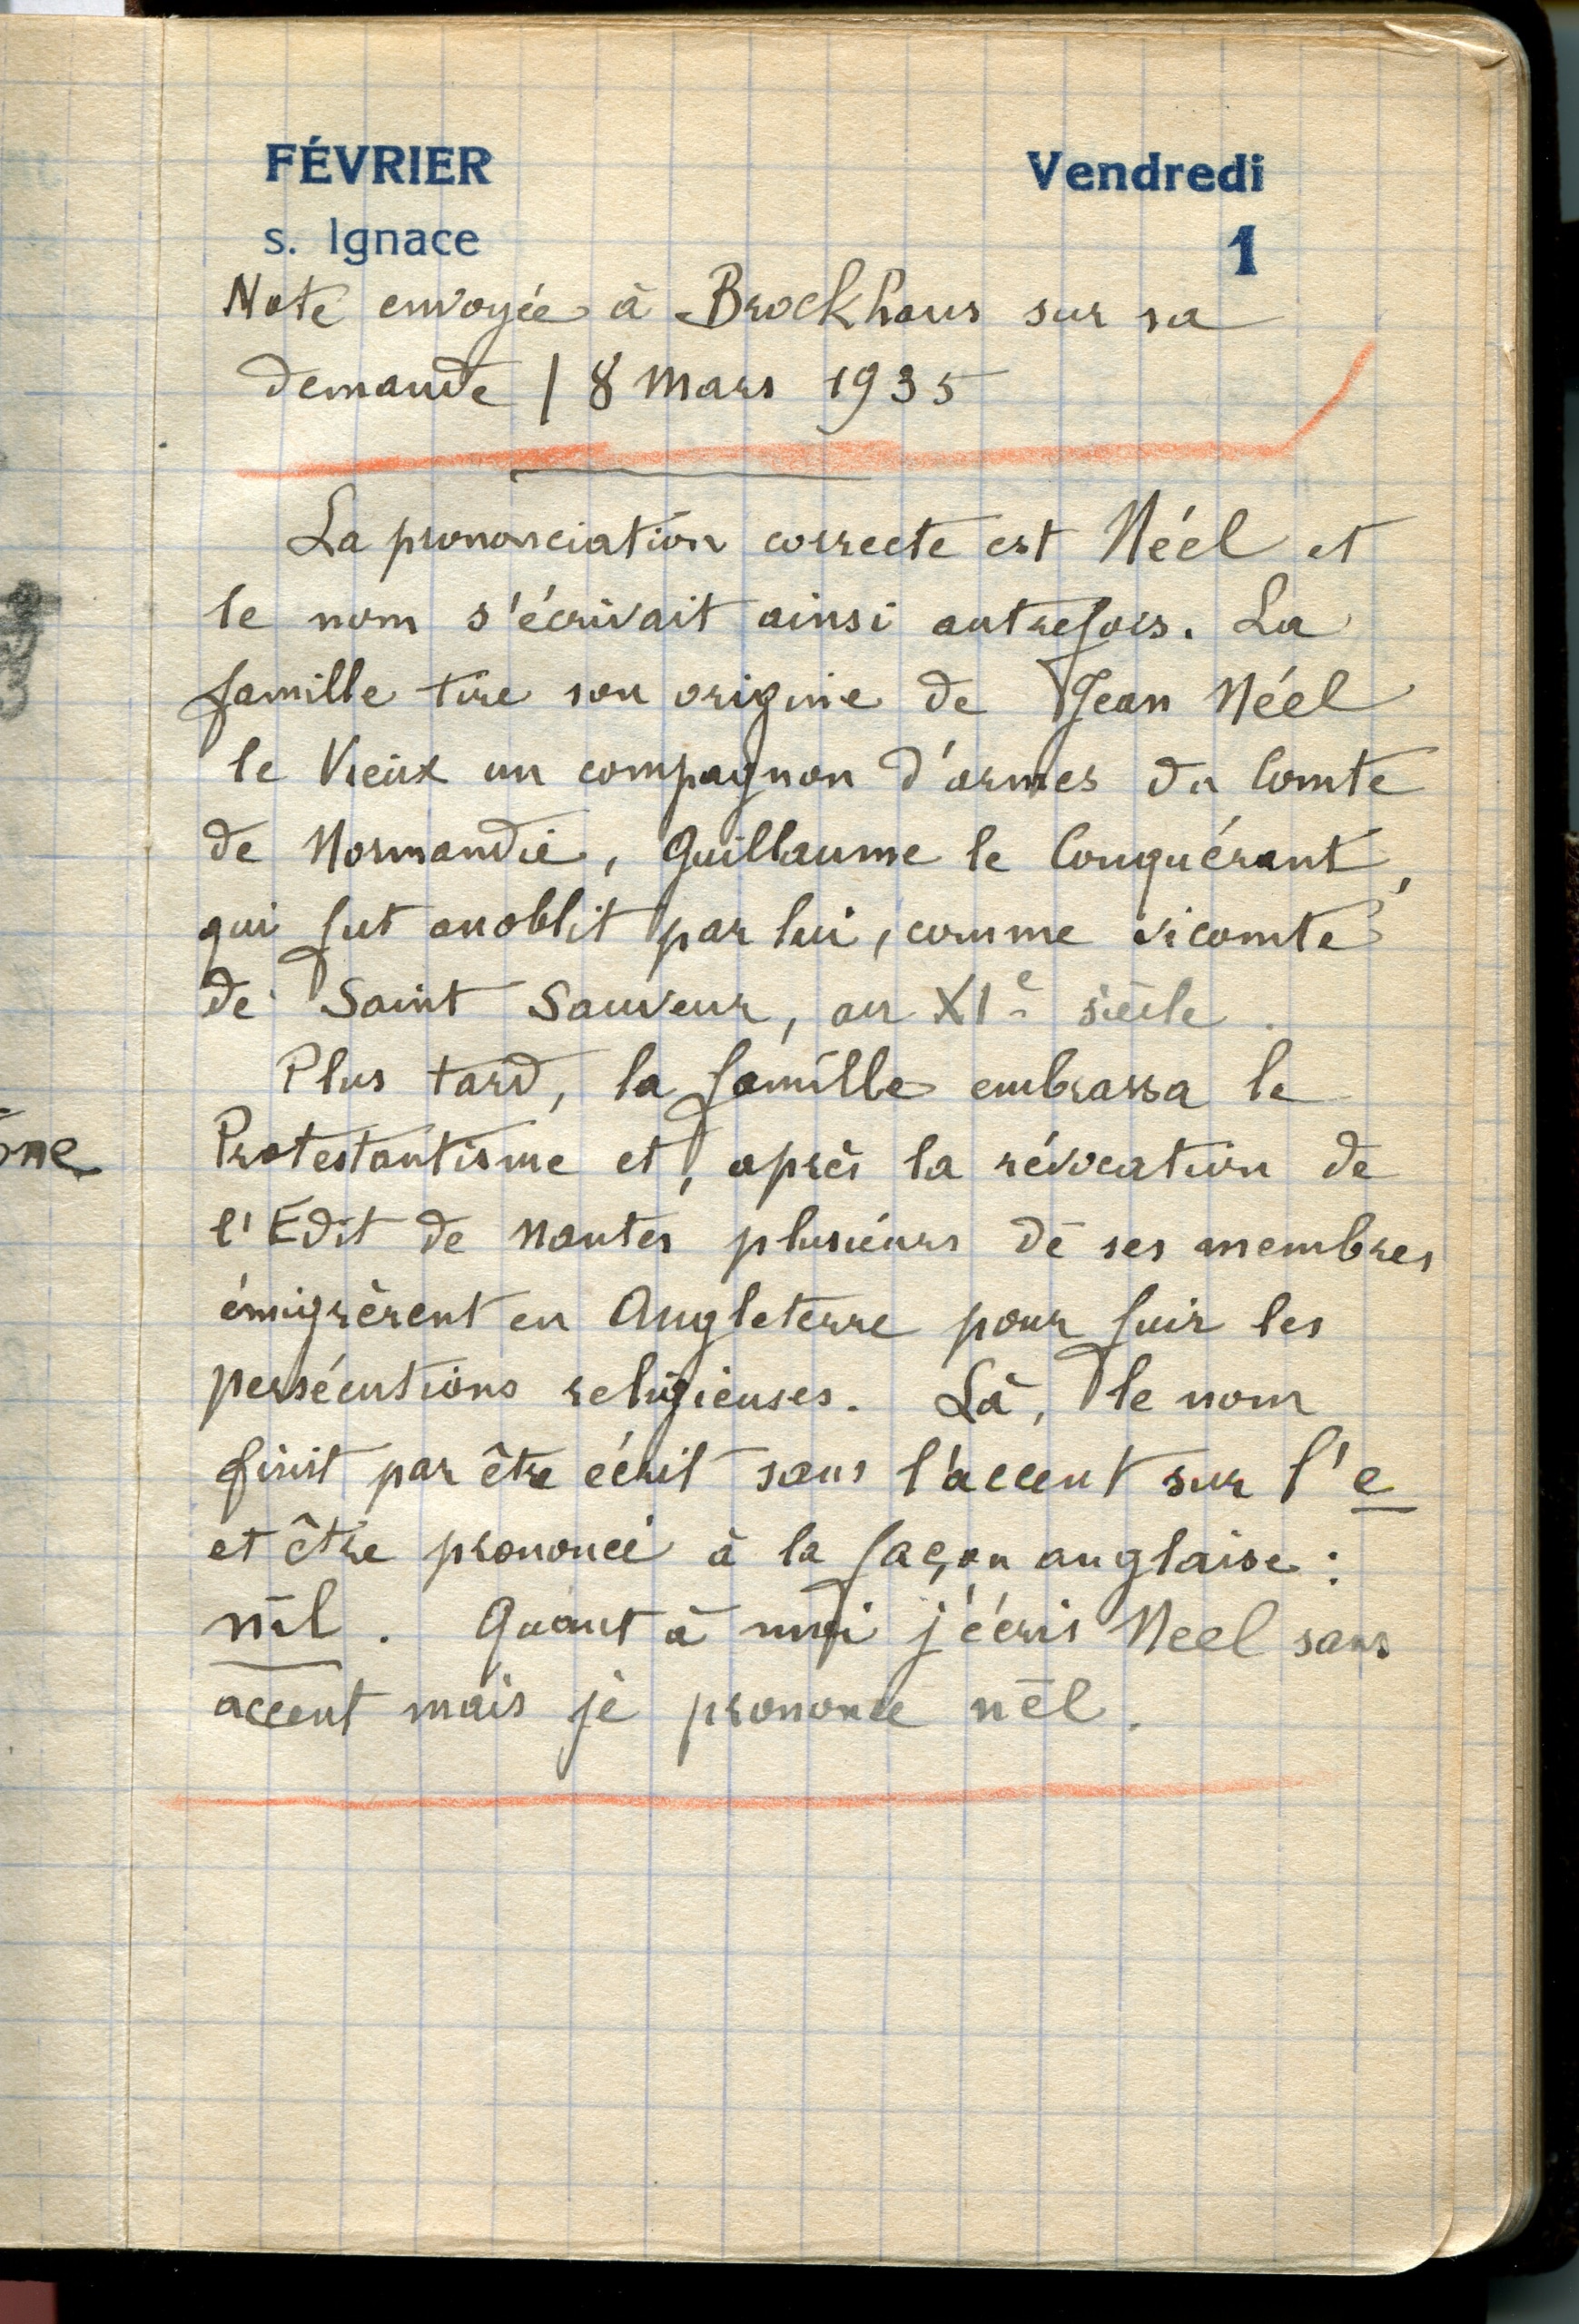 FÉVRIER Vendredi
s. Ignace 1
Note envoyée à Brockhaus sur sa
demande / 8 Mars 1935
La prononciation correcte est Néel et
le nom s'écrivait ainsi autrefois. La
famille tire son origine de Jean Néel
le Vieux un compagnon d'armes du Comte
de Normandie, Guillaume le Conquérant,
qui fut anoblit par lui, comme vicomte
de Saint Sauveur, au XIe siècle.
Plus tard, la famille embrassa le
Protestantisme et, après la révocation de
l'Edit de Nantes plusieurs de ses membres
émigrèrent en Angleterre pour fuir les
persécutions religieuses. Là, le nom
finit par être écrit sans l'accent sur l'e
et être prononcé à la façon anglaise :
nīl. Quant à moi j'écris Neel sans
accent mais je prononce nēl.
one